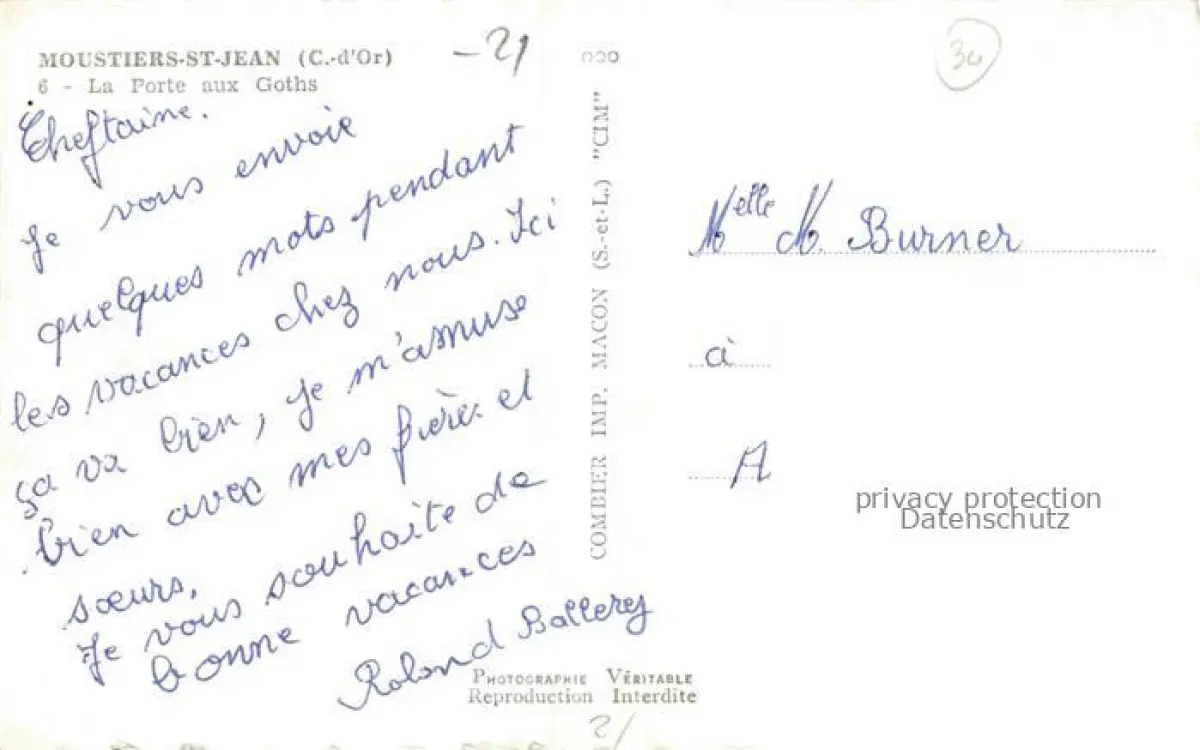 MOUSTIERS-ST-JEAN (C.-d'Or)
6 - La Porte aux Goths
- 21
Cheftaine.
Je vous envoie
quelques mots pendant
les vacances chez nous. Ici
ça va bien, je m'amuse
bien avec mes frères et
sœurs.
Je vous souhaite de
bonne vacances
Roland Ballerey
COMBIER IMP. MACON (S.-et-L.) "CIM"
30
Melle M. Burner
à
A
privacy protection
Datenschutz
PHOTOGRAPHIE VÉRITABLE
Reproduction Interdite
2/